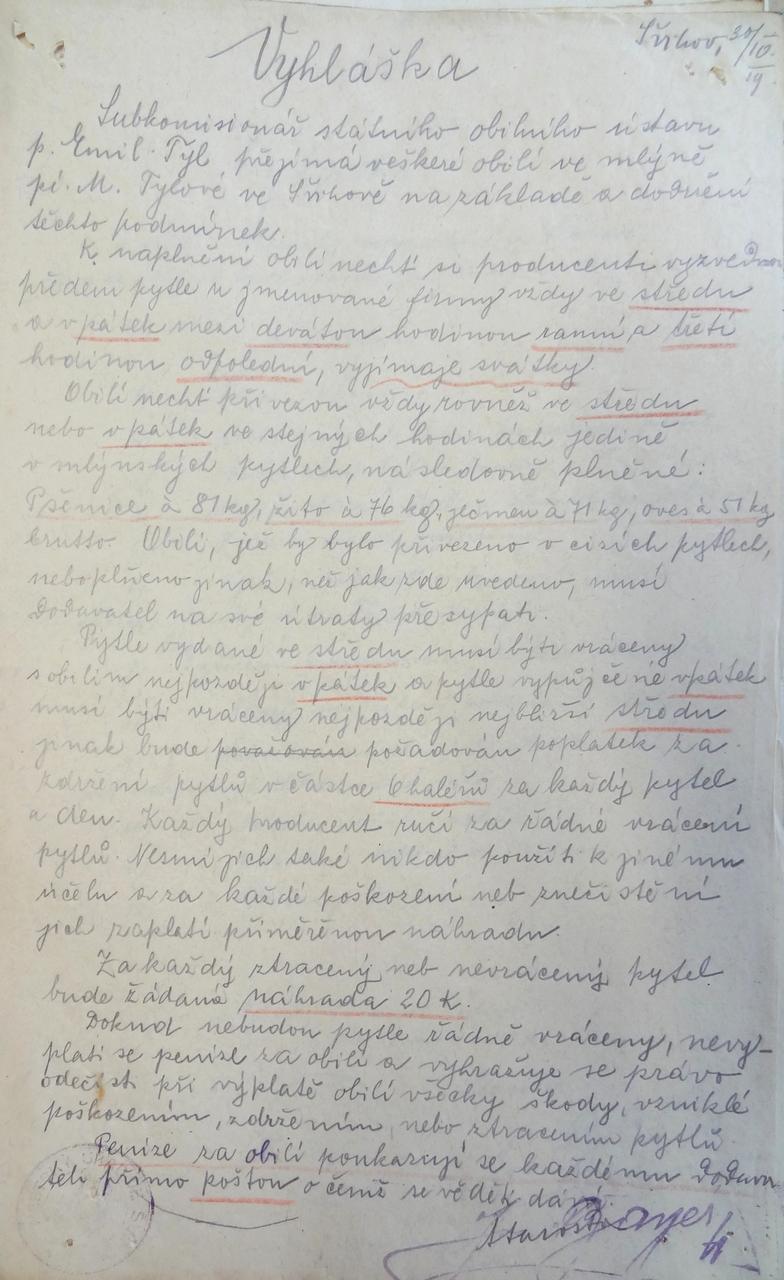 Vyhláška
30/IV 19
Subkomisionář státního obilního ústavu
p. Emil Tyl přejímá veškeré obilí ve mlýně
pí. M. Tylové ve na základě a dodržení
těchto podmínek.
K naplnění obilí nechť si producenti vyzvednou
předem pytle u jmenované firmy vždy ve středu
a v pátek mezi devátou hodinou ranní a třetí
hodinou odpolední, vyjímaje svátky.
Obilí nechť přivezou vždy rovněž ve středu
nebo v pátek ve stejných hodinách jedině
v mlýnských pytlech, následovně plněné:
Pšenice à 81 kg, žito à 76 kg, ječmen à 71 kg, oves à 51 kg
brutto. Obilí, jež by bylo přivezeno v cizích pytlech,
nebo plněno jinak, než jak zde uvedeno, musí
dodavatel na své útraty přesypati.
Pytle vydané ve středu musí býti vráceny
s obilím nejpozději v pátek a pytle vypůjčené v pátek
musí býti vráceny nejpozději nejbližší středu
jinak bude považován požadován poplatek za
zdržení pytlů v částce 6 haléřů za každý pytel
a den. Každý producent ručí za řádné vrácení
pytlů. Nesmí jich také nikdo použíti k jinému
účelu a za každé poškození neb znečistění
jich zaplatí přiměřenou náhradu.
Za každý ztracený neb nevrácený pytel
bude žádaná náhrada 20 K.
Dokud nebudou pytle řádně vráceny, nevy-
platí se peníze za obilí a vyhražuje se právo
odečísti při výplatě obilí všecky škody, vzniklé
poškozením, zdržením, nebo ztracením pytlů.
Peníze za obilí poukazují se každému dodava
teli přímo poštou o čemž se věděti dává.
Starosta